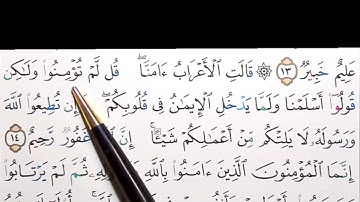 عَلِيمٌ خَبِيرٌ ١٣ ۞ قَالَتِ الْأَعْرَابُ ءَامَنَّا ۖ قُل لَّمْ تُؤْمِنُوا۟ وَلَٰكِن
قُولُوٓا۟ أَسْلَمْنَا وَلَمَّا يَدْخُلِ الْإِيمَٰنُ فِى قُلُوبِكُمْ ۖ وَإِن تُطِيعُوا۟ اللَّهَ
وَرَسُولَهُۥ لَا يَلِتْكُم مِّنْ أَعْمَٰلِكُمْ شَيْـًٔا ۚ إِنَّ غَفُورٌ رَّحِيمٌ ١٤
إِنَّمَا الْمُؤْمِنُونَ الَّذِينَ ءَامَنُوا۟ بِاللَّهِ وَرَسُولِهِۦ ثُمَّ لَمْ يَرْتَابُوا۟